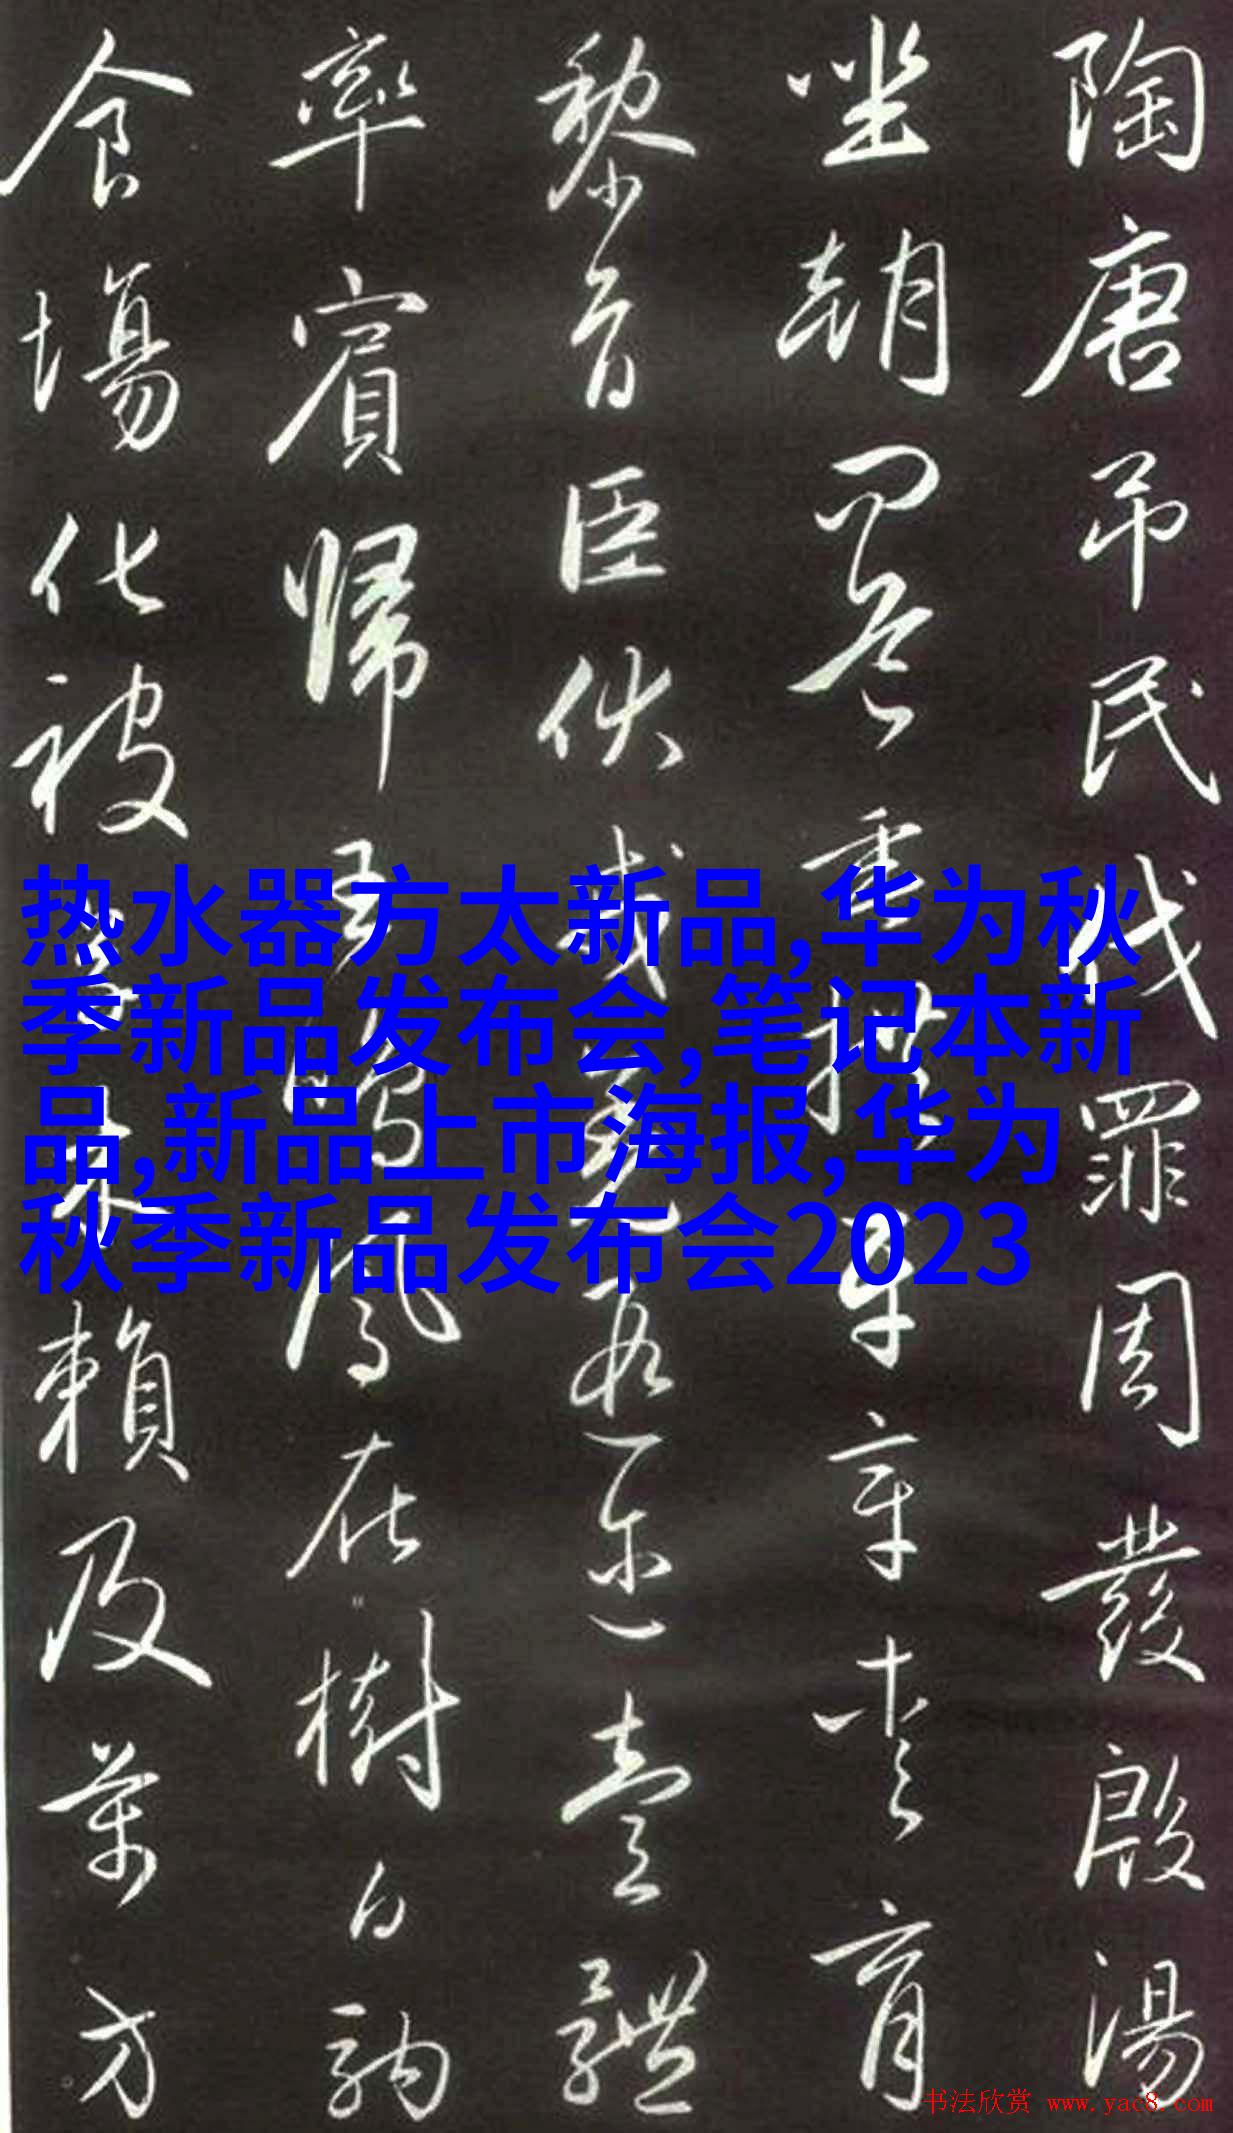 陶唐吊民伐罪周發殷湯
坐朝問道垂拱平章愛育
黎首臣伏戎羌遐迩壹體
率賓歸王鳴鳳在樹白駒
食場化被草木賴及萬方
热水器方太新品,华为秋
季新品发布会,笔记本新
品,新品上市海报,华为
秋季新品发布会2023
书法欣赏 www.yac8.com